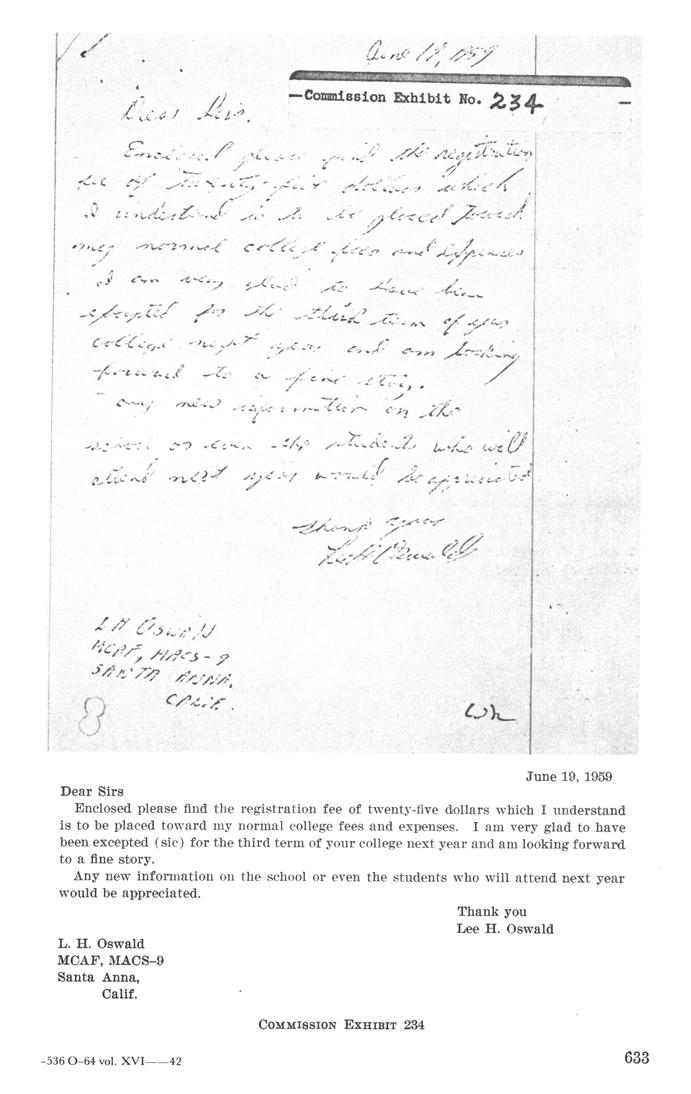 June 19, 1959
—Commission Exhibit No. 234 —
Dear Sirs.
Enclosed please find the registration
fee of twenty-five dollars which
I undistand is to be placed toward
my normal college fees and expenses
I am very glad to have been
excepted for the third term of your
college next year and am looking
forward to a fine story.
any new information on the
school or even the students who will
attend next year would be appreciated
Thank you
Lee H Oswald
L H OSWALD
MCAF, MACS-9
SANTA ANNA,
CALIF.
8
Wh
June 19, 1959
Dear Sirs
Enclosed please find the registration fee of twenty-five dollars which I understand
is to be placed toward my normal college fees and expenses. I am very glad to have
been excepted (sic) for the third term of your college next year and am looking forward
to a fine story.
Any new information on the school or even the students who will attend next year
would be appreciated.
Thank you
Lee H. Oswald
L. H. Oswald
MCAF, MACS–9
Santa Anna,
Calif.
COMMISSION EXHIBIT 234
-536 O–64 vol. XVI——42
633